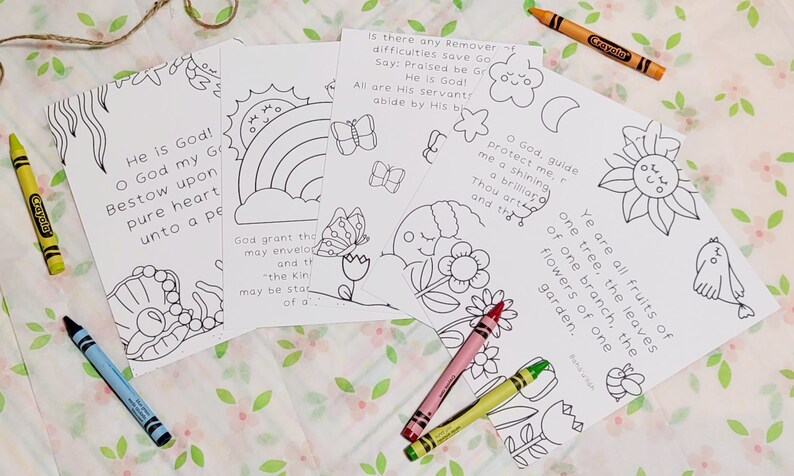 He is God!
O God my Go
Bestow upon
pure heart
unto a pe
God grant tho
may envelo
and th
"the Kin
may be sta
of a
Is there any Remover of
difficulties save Go
Say: Praised be Go
He is God!
All are His servants
abide by His bi
O God, guide
protect me, r
me a shining
a brillian
Thou art
and th
Ye are all fruits of
one tree, the leaves
of one branch, the
flowers of one
garden.
Bahá'u'lláh
Crayola
Crayola
Crayola